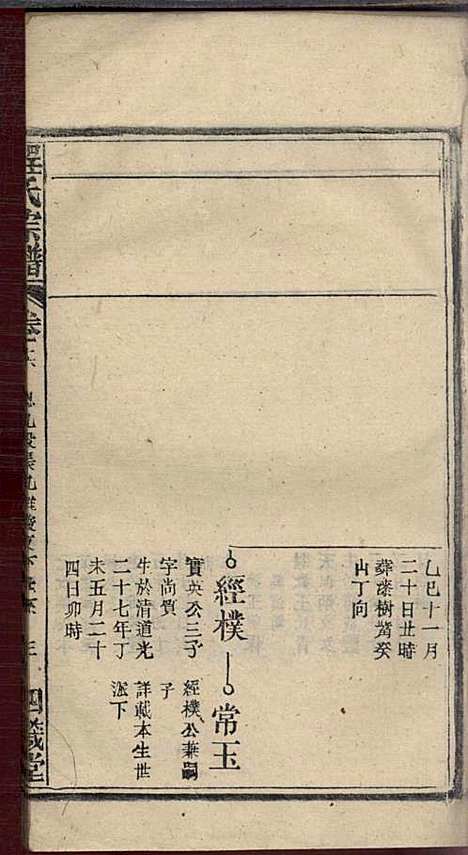 乙巳十一月
二十日丑時
葬漆樹嘴癸
山丁向
經樸
常玉
寶英公三子
字尚質
生於清道光
二十七年丁
未五月二十
四日卯時
經樸公兼嗣
子
詳載本生世
派下
氏宗譜
卷十六
四箴堂